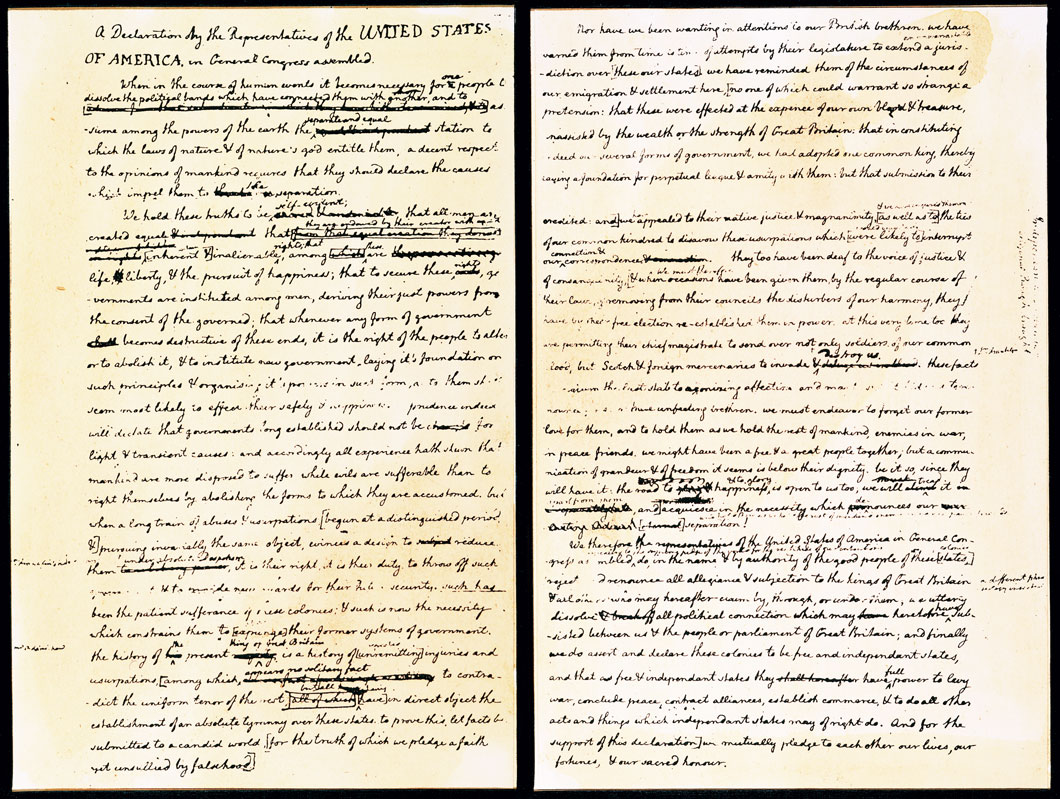 A Declaration by the Representatives of the UNITED STATES
OF AMERICA, in General Congress assembled.
When in the course of human events it becomes necessary for one people
dissolve the political bands which have connected them with another, and to as-
separate and equal
-sume among the powers of the earth the station to
which the laws of nature & of nature's god entitle them, a decent respect
to the opinions of mankind requires that they should declare the causes
which impel them to the separation.
self-evident;
We hold these truths to be that all men are
they are endowed by their creator with
created equal & independent that from that equal creation they derive
rights; that these
[inherent &] inalienable, among which are
rights
life & liberty, & the pursuit of happiness; that to secure these ends, go-
-vernments are instituted among men, deriving their just powers from
the consent of the governed; that whenever any form of government
shall becomes destructive of these ends, it is the right of the people to alter
or to abolish it, & to institute new government, laying it's foundation on
such principles & organising it's powers in such form, as to them shall
seem most likely to effect their safety & happiness. prudence indeed
will dictate that governments long established should not be changed for
light & transient causes: and accordingly all experience hath shewn that
mankind are more disposed to suffer while evils are sufferable than to
right themselves by abolishing the forms to which they are accustomed. but
when a long train of abuses & usurpations [begun at a distinguished period
&] pursuing invariably the same object, evinces a design to subject reduce
under absolute despotism
them it is their right, it is their duty to throw off such
& to provide new guards for their future security. such has
been the patient sufferance of these colonies; & such is now the necessity
which constrains them to [expunge] their former systems of government.
the king of Great Britain
the history of his present is a history of [unremitting] injuries and
appears no solitary fact
usurpations, [among which, to contra-
but all having
-dict the uniform tenor of the rest, [all of which] have in direct object the
establishment of an absolute tyranny over these states. to prove this, let facts be
submitted to a candid world, [for the truth of which we pledge a faith
yet unsullied by falsehood]
Nor have we been wanting in attentions to our British brethren. we have
warned them from time to time of attempts by their legislature to extend a juris-
-diction over [these our states] we have reminded them of the circumstances of
our emigration & settlement here, [no one of which could warrant so strange a
pretension: that these were effected at the expence of our own blood & treasure,
unassisted by the wealth or the strength of Great Britain: that in constituting
indeed our several forms of government, we had adopted one common king, thereby
laying a foundation for perpetual league & amity with them: but that submission to their
credited: and] we appealed to their native justice & magnanimity, [as well as to] the ties
of our common kindred to disavow these usurpations which [were likely to] interrupt
connection &
our correspondence & connection. they too have been deaf to the voice of justice &
of consanguinity, [& when occasions have been given them, by the regular course of
their laws, of removing from their councils the disturbers of our harmony, they
have by their free election re-established them in power. at this very time too they
are permitting their chief magistrate to send over not only soldiers of our common
destroy us
blood, but Scotch & foreign mercenaries to invade & these facts
have given the last stab to agonizing affection, and manly
unfeeling brethren. we must endeavor to forget our former
love for them, and to hold them as we hold the rest of mankind, enemies in war,
in peace friends. we might have been a free & a great people together; but a commu-
nication of grandeur & of freedom it seems is below their dignity. be it so, since they
& to glory
will have it: the road to happiness, is open to us too; we will tread it
and] acquiesce in the necessity which denounces our
[eternal] separation!
We therefore the representatives of the United States of America in General Con-
-gress assembled, do in the name & by authority of the good people of these [states,]
reject and renounce all allegiance & subjection to the kings of Great Britain
& all others who may hereafter claim by, through, or under them; we utterly
have
dissolve & break off all political connection which may have heretofore sub-
-sisted between us & the people or parliament of Great Britain; and finally
we do assert and declare these colonies to be free and independent states,
full
and that as free & independent states they shall hereafter have power to levy
war, conclude peace, contract alliances, establish commerce, & to do all other
acts and things which independent states may of right do. And for the
support of this declaration] we mutually pledge to each other our lives, our
fortunes, & our sacred honour.